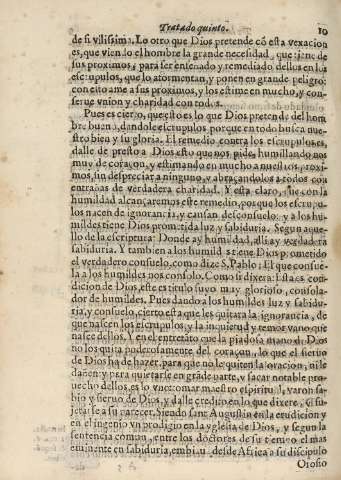 Tratado quinto. 10
de si vilissima. Lo otro que Dios pretende cõ esta vexacion
es, que viendo el hombre la grande necesidad, que tiene de
sus proximos, para ser enseñado y remediado dellos en los
escrupulos, que lo atormentan, y ponen en grande peligro:
con esto ame a sus proximos, y los estime en mucho, y con-
serue vnion y charidad con todos.
Pues es cierto, que esto es lo que Dios pretende del hom
bre bueno, dandole escrupulos porque en todo busca nue-
stro bien y su gloria. El remedio contra los escrupulos es,
dalle de presto a Dios esto que nos pide, humillando nos
muy de coraçon, y estimando en mucho a nuestros proxi-
mos, sin despreciar a ninguno, y abraçandolos a todos con
entrañas de verdadera charidad. Y esta claro, que con la
humildad alcançaremos este remedio, porque los escrupu-
los nacen de ignorancia, y causan desconsuelo: y a los hu-
mildes tiene Dios prometida luz y sabiduria. Segun aque-
llo de la escriptura: Donde ay humildad, alli ay verdadera
sabiduria. Y tambien a los humildes tiene Dios prometido
el verdadero consuelo, como dize S. Pablo: El que consue-
la a los humildes nos consolo. Como si dixera: Esta es con-
dicion de Dios, este es titulo suyo muy glorioso, consola-
dor de humildes. Pues dando a los humildes luz y sabidu-
ria, y consuelo, cierto esta que les quitara la ignorancia, de
que nascen los escrupulos, y la inquietud y temor vano que
nasce dellos. Y en el entretãto que la piadosa mano de Dios
no los quita poderosamente del coraçon, lo que el sieruo
de Dios ha de hazer, para que no le quiten la oracion, ni le
dañen, y para quietarse en grãde parte, y sacar notable pro
uecho dellos, es
maestro espiritual, varon sa-
bio y sieruo de Dios, y dalle credito en lo que dixere, y su-
jetarse a su parecer. Siendo sant Augustin en la erudicion y
en el ingenio vn prodigio en la yglesia de Dios, y segun la
sentencia comun, entre los doctores de su tiempo el mas
eminente en sabiduria, embiaua desde Africa a su discipulo
Orosio